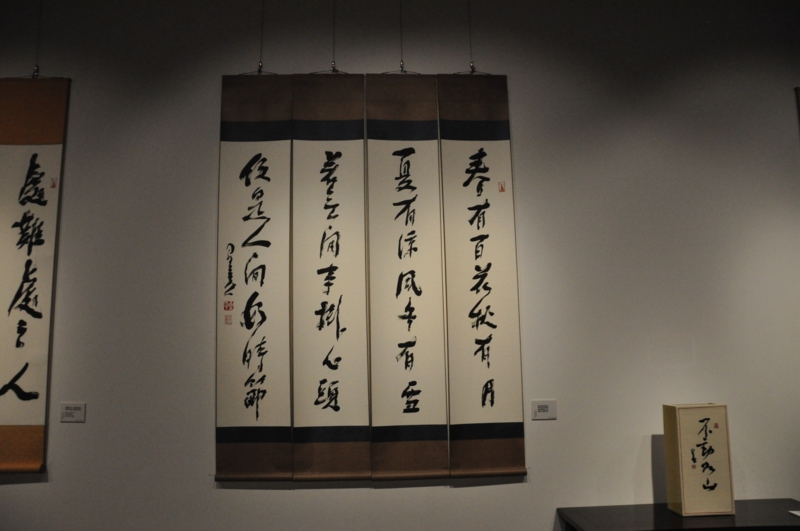 春有百花秋有月
夏有涼風冬有雪
若無閒事掛心頭
便是人間好時節
處難處之人
不動如山